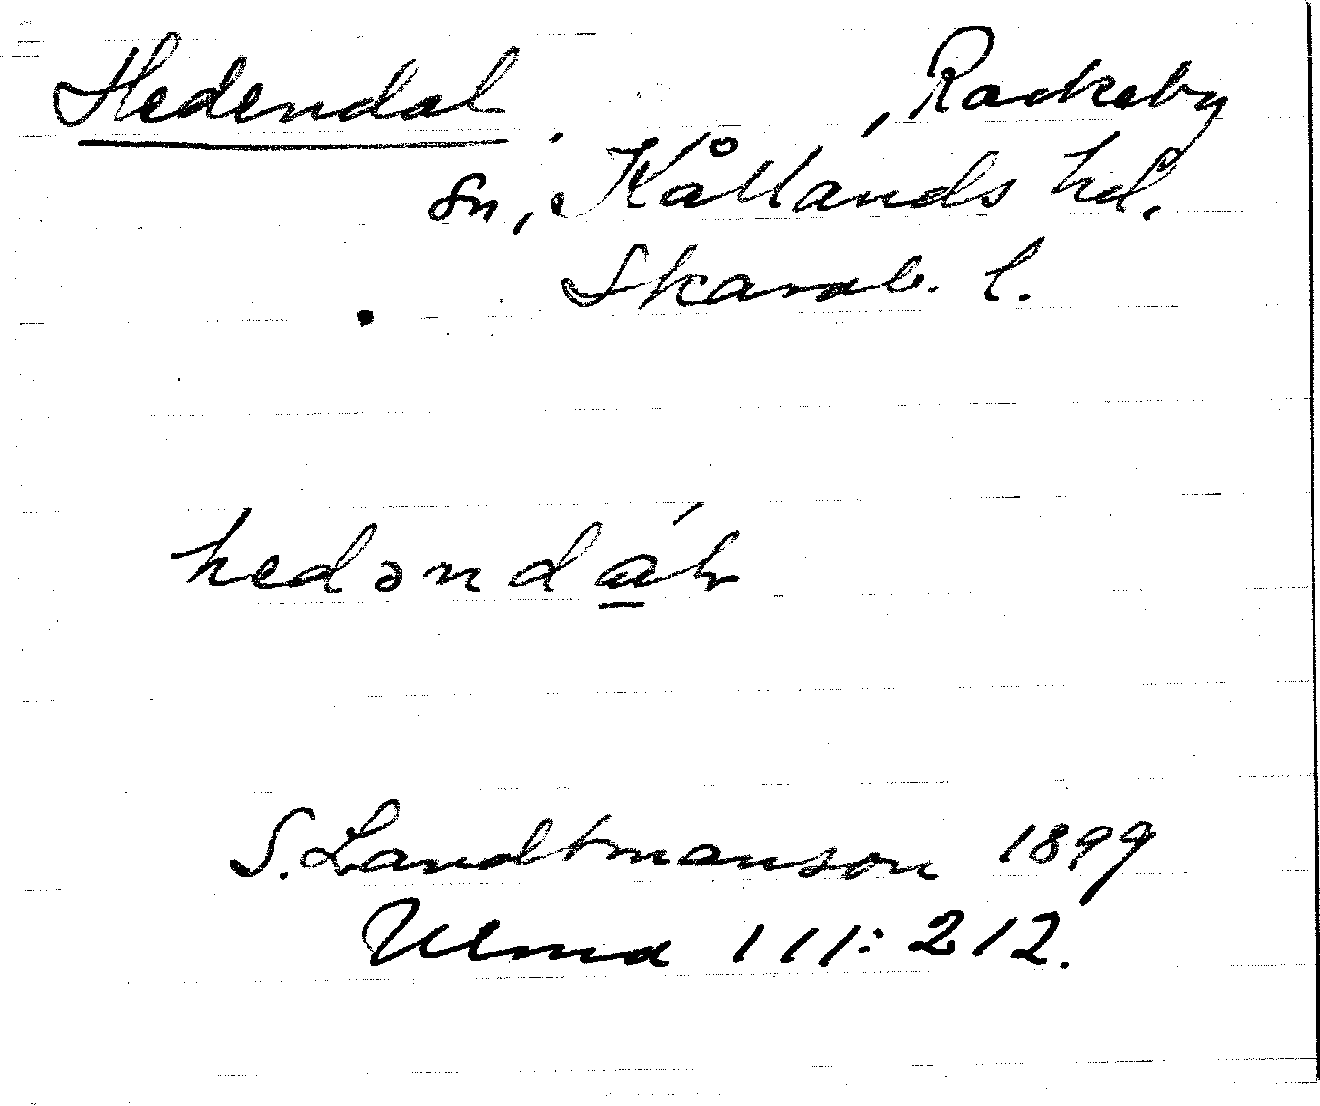 Hedendal, Rackeby
sn, Kållands hd.
Skarab. l.
hedəndáḷ
S. Landtmanson 1899
Ulma 111:212.